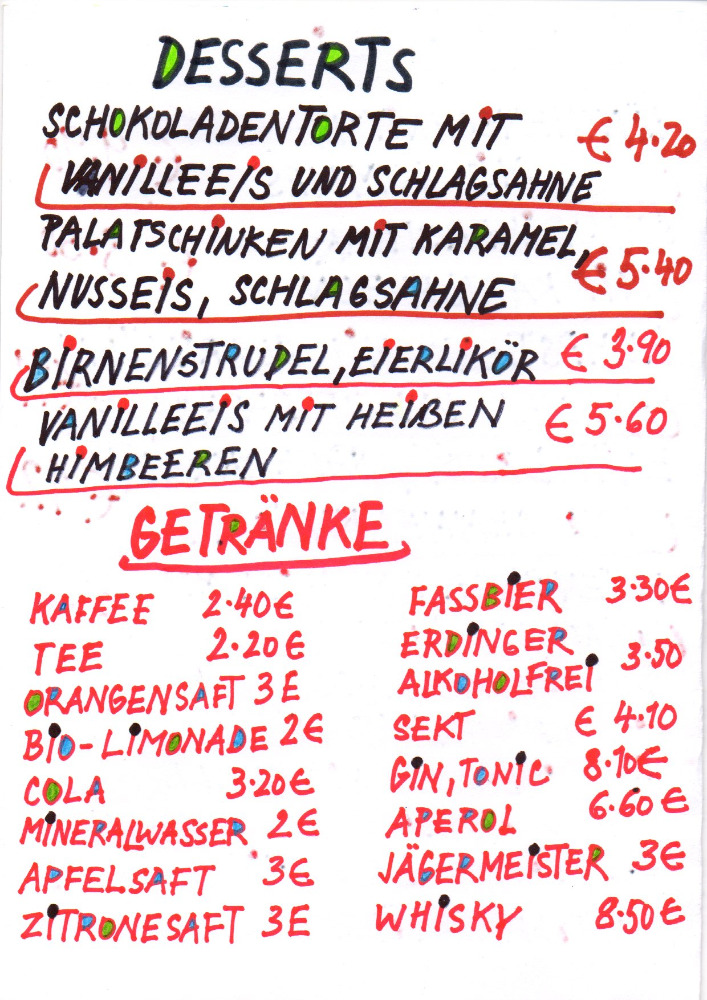 DESSERTS
SCHOKOLADENTORTE MIT € 4.20
VANILLEEIS UND SCHLAGSAHNE
PALATSCHINKEN MIT KARAMEL,
NUSSEIS, SCHLAGSAHNE € 5.40
BIRNENSTRUDEL, EIERLIKÖR € 3.90
VANILLEEIS MIT HEIßEN € 5.60
HIMBEEREN
GETRÄNKE
KAFFEE 2.40€
TEE 2.20€
ORANGENSAFT 3E
BIO-LIMONADE 2€
COLA 3.20€
MINERALWASSER 2€
APFELSAFT 3€
ZITRONESAFT 3E
FASSBIER 3.30€
ERDINGER
ALKOHOLFREI 3.50
SEKT € 4.10
GIN, TONIC 8.10€
APEROL 6.60€
JÄGERMEISTER 3€
WHISKY 8.50€